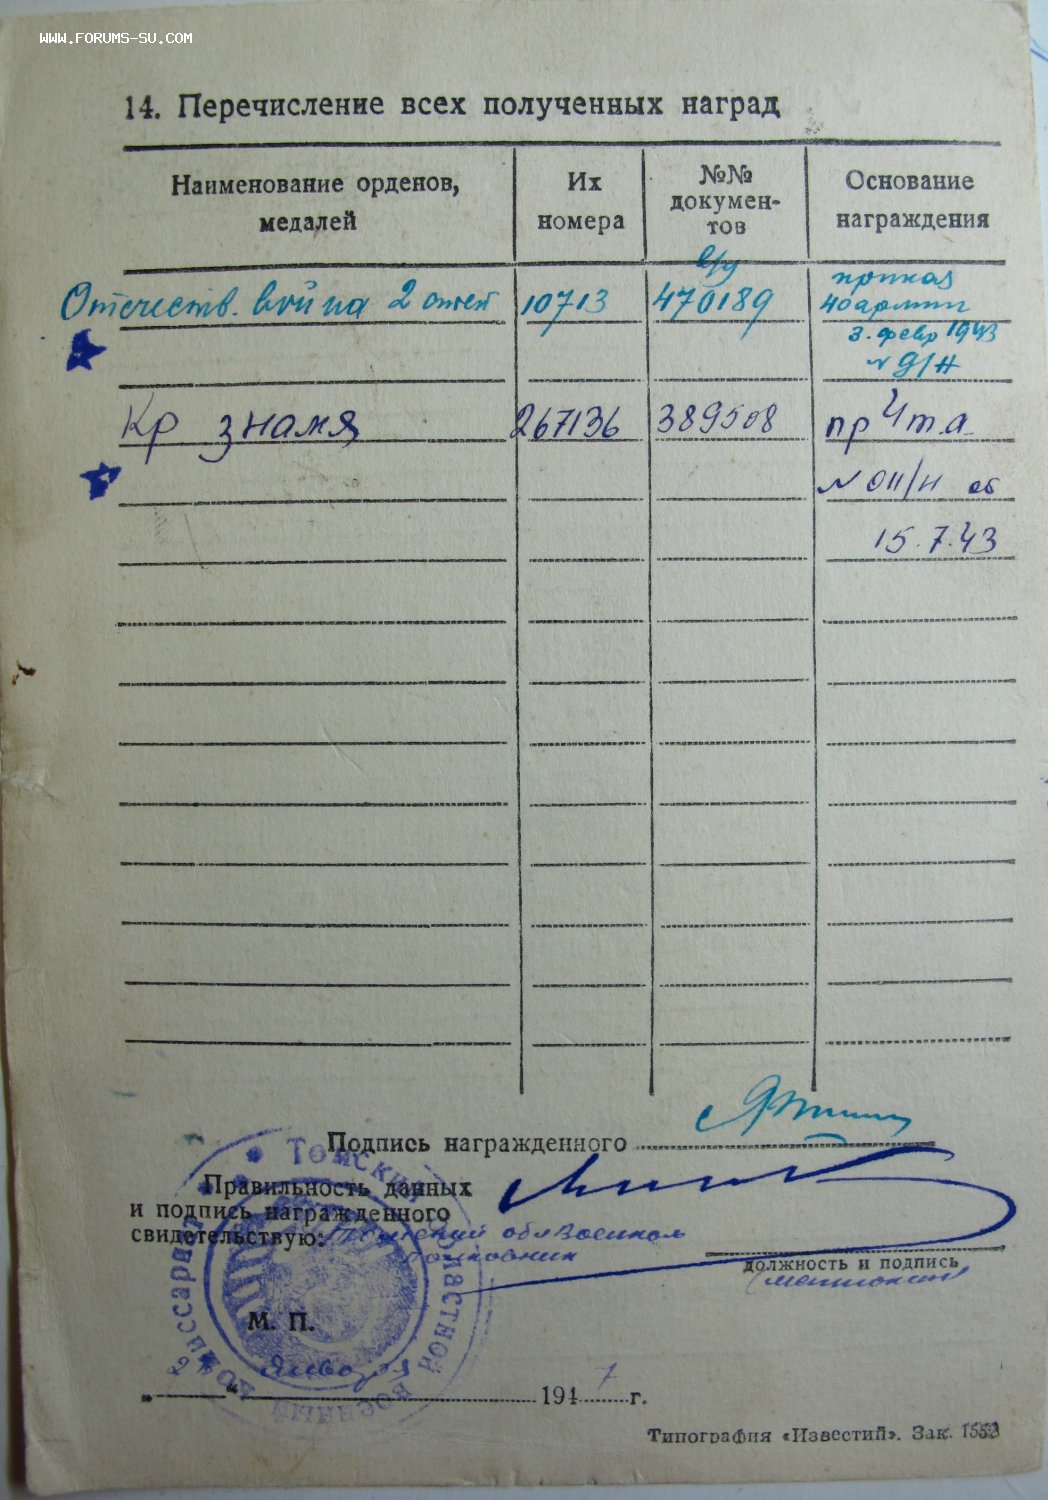 WWW.FORUMS-SU.COM
14. Перечисление всех полученных наград
Наименование орденов, медалей
Их номера
№№ докумен-
тов
Основание награждения
в/у
Отечеств. война 2 степ 10713 470189 приказ
40 армии
3. февр 1943
№ 9/н
Кр знамя 267136 389508 пр 4 т.а
№ 011/н об
15.7.43
Подпись награжденного
Правильность данных
и подпись награжденного
свидетельствую: Томский облвоенком
полковник
должность и подпись
М. П.
Томский областной военный комиссариат
января 1947 г.
Типография «Известий». Зак. 1553